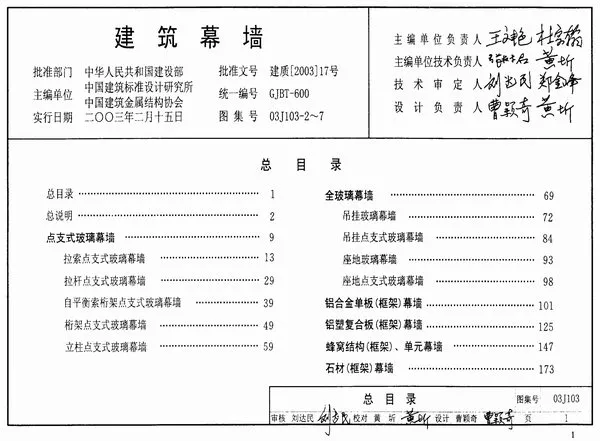 建筑幕墙
批准部门 中华人民共和国建设部 批准文号 建质[2003]17号
主编单位 中国建筑标准设计研究所 中国建筑金属结构协会 统一编号 GJBT-600
实行日期 二〇〇三年二月十五日 图集号 03J103-2~7
主编单位负责人
主编单位技术负责人 黄圻
技术审定人 刘达民
设计负责人 曹颖奇 黄圻
总目录
总目录 1
总说明 2
点支式玻璃幕墙 9
拉索点支式玻璃幕墙 13
拉杆点支式玻璃幕墙 29
自平衡索桁架点支式玻璃幕墙 39
桁架点支式玻璃幕墙 49
立柱点支式玻璃幕墙 59
全玻璃幕墙 69
吊挂玻璃幕墙 72
吊挂点支式玻璃幕墙 84
座地玻璃幕墙 93
座地点支式玻璃幕墙 98
铝合金单板(框架)幕墙 101
铝塑复合板(框架)幕墙 125
蜂窝结构(框架)、单元幕墙 147
石材(框架)幕墙 173
总目录 图集号 03J103
审核 刘达民 刘达民 校对 黄圻 黄圻 设计 曹颖奇 曹颖奇 页 1
1